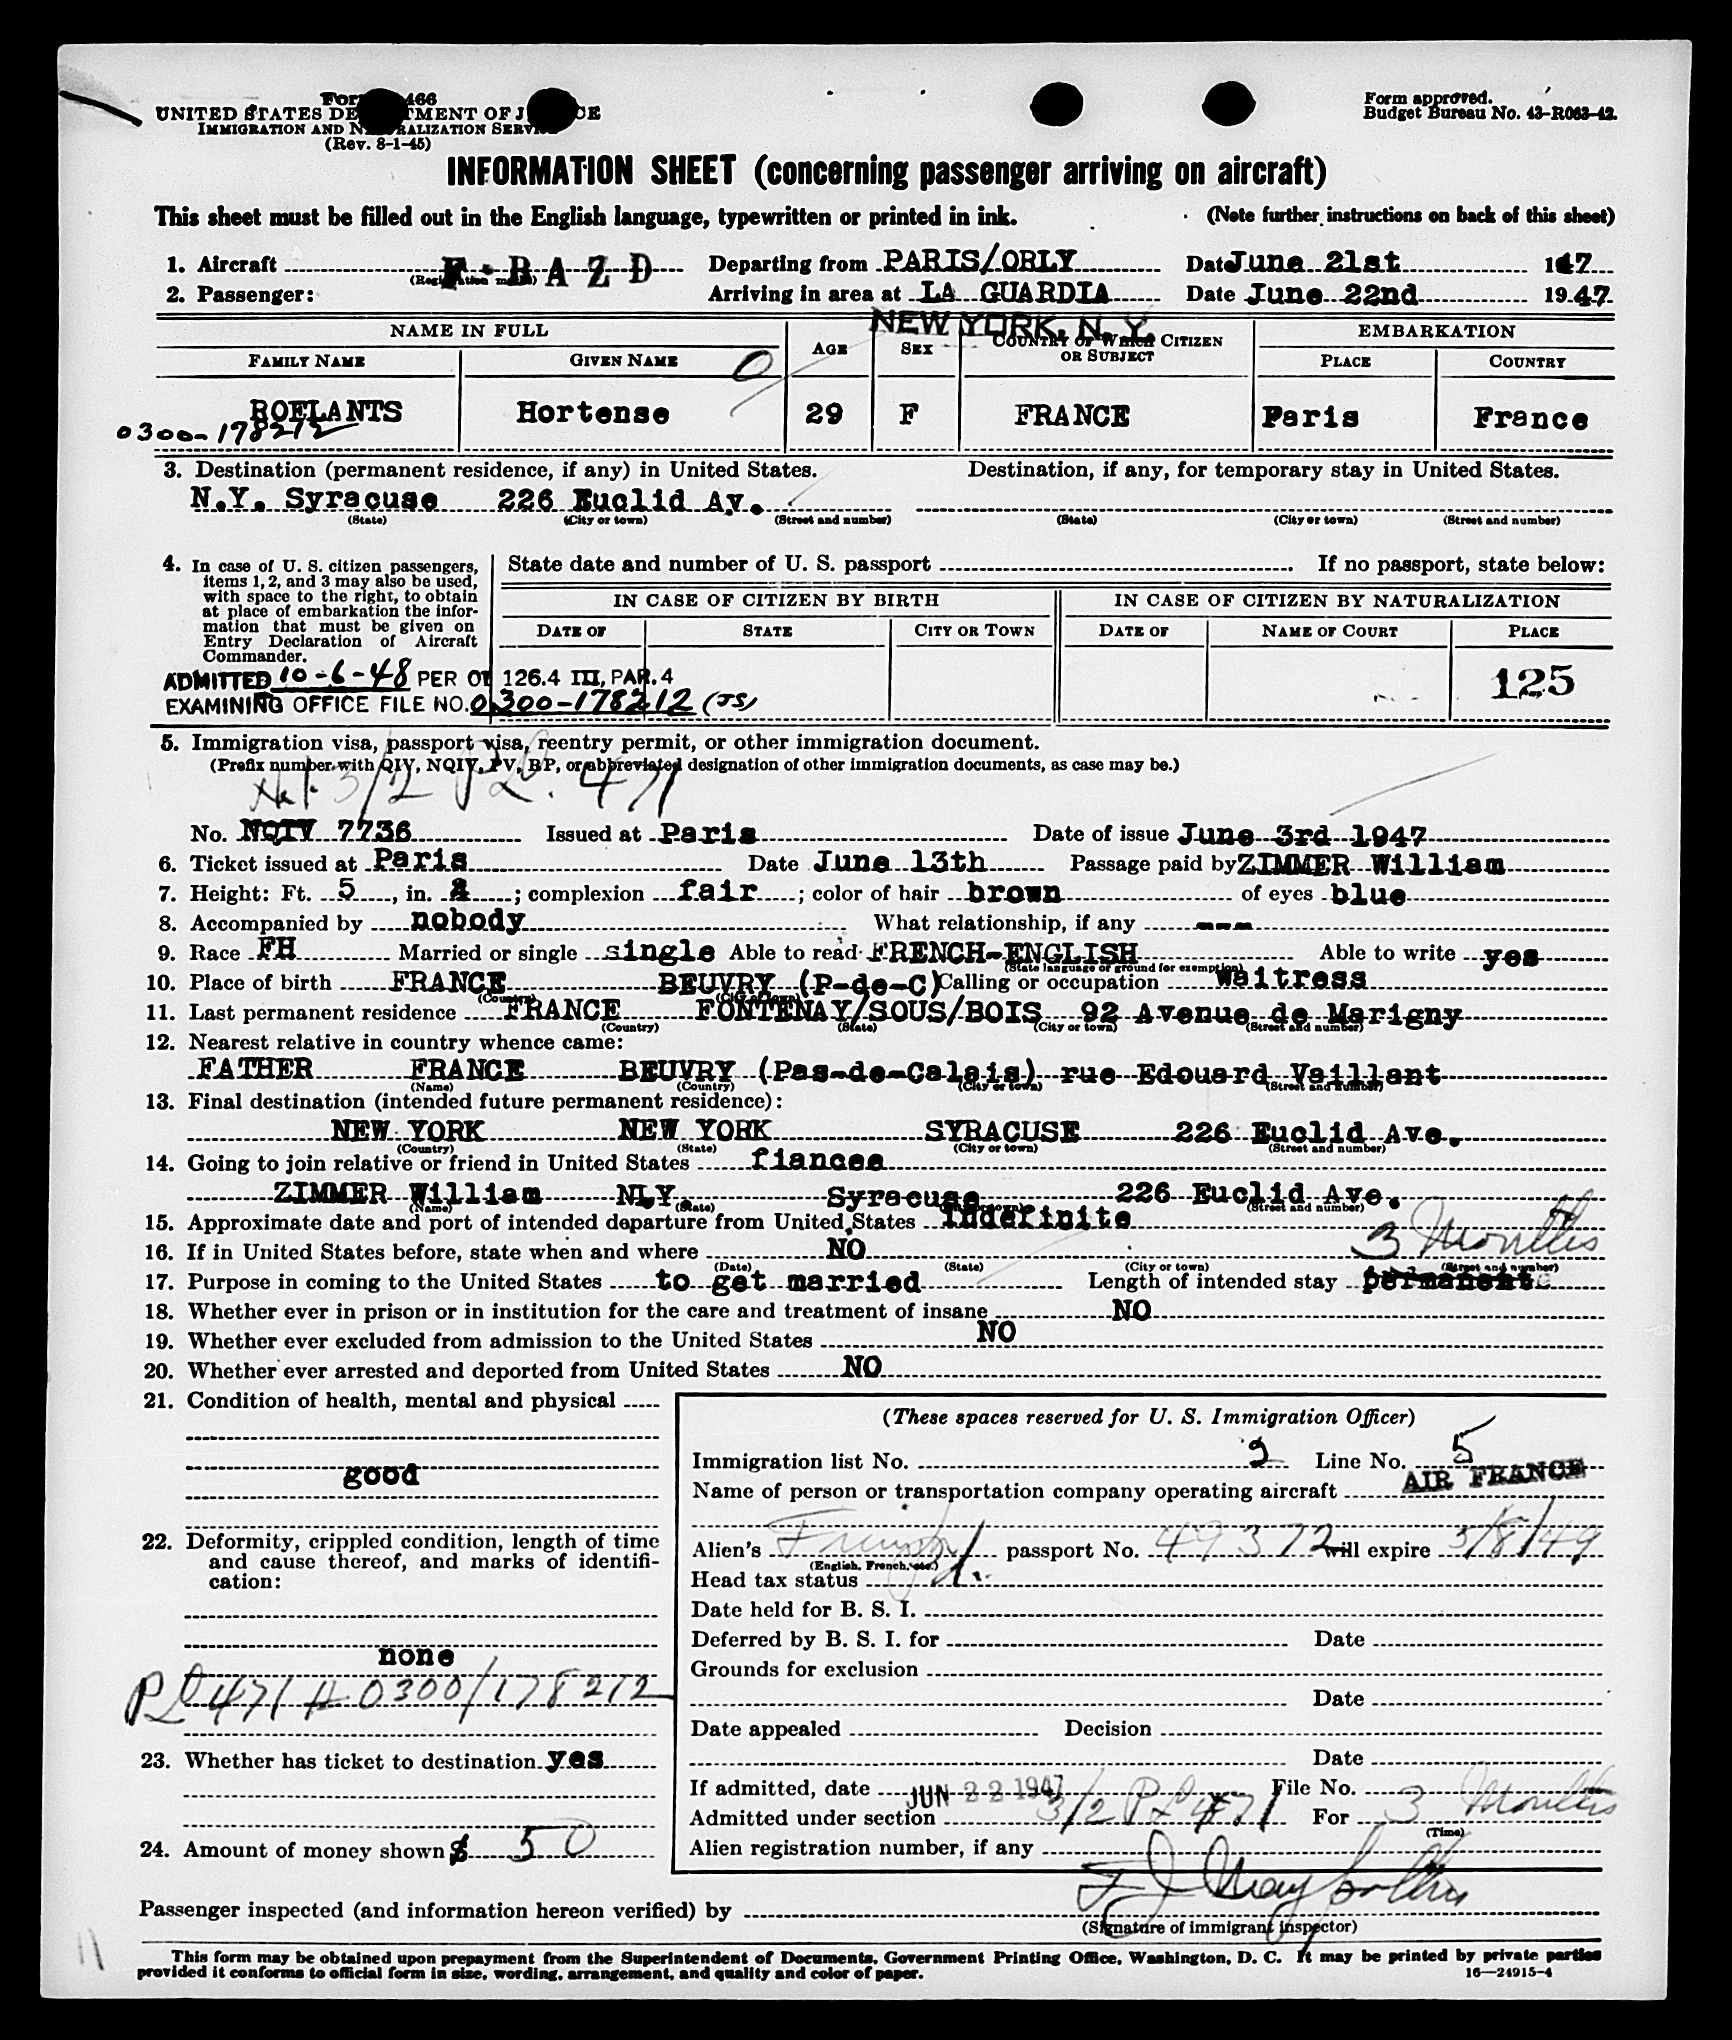 Form I-466
UNITED STATES DEPARTMENT OF JUSTICE
IMMIGRATION AND NATURALIZATION SERVICE
(Rev. 8-1-45)
Form approved.
Budget Bureau No. 43-R063-42.
INFORMATION SHEET (concerning passenger arriving on aircraft)
This sheet must be filled out in the English language, typewritten or printed in ink.
(Note further instructions on back of this sheet)
1. Aircraft F-BAZD Departing from PARIS/ORLY Date June 21st 147
(Registration mark)
2. Passenger: Arriving in area at LA GUARDIA Date June 22nd 1947
NEW YORK, N. Y.
NAME IN FULL AGE SEX COUNTRY OF WHICH CITIZEN OR SUBJECT EMBARKATION
FAMILY NAME GIVEN NAME PLACE COUNTRY
ROELANTS Hortense 29 F FRANCE Paris France
0300-178212
3. Destination (permanent residence, if any) in United States. Destination, if any, for temporary stay in United States.
N.Y. Syracuse 226 Euclid Av.
(State) (City or town) (Street and number) (State) (City or town) (Street and number)
4. In case of U. S. citizen passengers,
items 1, 2, and 3 may also be used,
with space to the right, to obtain
at place of embarkation the infor-
mation that must be given on
Entry Declaration of Aircraft
Commander.
State date and number of U. S. passport If no passport, state below:
IN CASE OF CITIZEN BY BIRTH IN CASE OF CITIZEN BY NATURALIZATION
DATE OF STATE CITY OR TOWN DATE OF NAME OF COURT PLACE
125
ADMITTED 10-6-48 PER OI 126.4 III, PAR. 4
EXAMINING OFFICE FILE NO. 0300-178212 (JS)
5. Immigration visa, passport visa, reentry permit, or other immigration document.
(Prefix number with QIV, NQIV, PV, RP, or abbreviated designation of other immigration documents, as case may be.)
3/2 PL. 471
No. NQIV 7736 Issued at Paris Date of issue June 3rd 1947
6. Ticket issued at Paris Date June 13th Passage paid by ZIMMER William
7. Height: Ft. 5, in. 4; complexion fair; color of hair brown of eyes blue
8. Accompanied by nobody What relationship, if any ---
9. Race FH Married or single single Able to read FRENCH-ENGLISH Able to write yes
(State language or ground for exemption)
10. Place of birth FRANCE BEUVRY (P-de-C) Calling or occupation waitress
(Country) (City or town)
11. Last permanent residence FRANCE FONTENAY/SOUS/BOIS 92 Avenue de Marigny
(Country) (State) (City or town) (Street and number)
12. Nearest relative in country whence came:
FATHER FRANCE BEUVRY (Pas-de-Calais) rue Edouard Vaillant
(Name) (Country) (City or town) (Street and number)
13. Final destination (intended future permanent residence):
NEW YORK NEW YORK SYRACUSE 226 Euclid Ave.
(Country) (State) (City or town) (Street and number)
14. Going to join relative or friend in United States fiancee
ZIMMER William N.Y. Syracuse 226 Euclid Ave.
(Name) (State) (City or town) (Street and number)
15. Approximate date and port of intended departure from United States indefinite
3 Months
16. If in United States before, state when and where NO
(Date) (State) (City or town) (Street and number)
17. Purpose in coming to the United States to get married Length of intended stay permanent
18. Whether ever in prison or in institution for the care and treatment of insane NO
19. Whether ever excluded from admission to the United States NO
20. Whether ever arrested and deported from United States NO
21. Condition of health, mental and physical
good
22. Deformity, crippled condition, length of time
and cause thereof, and marks of identifi-
cation:
none
PL 471 # 0300/178212
23. Whether has ticket to destination yes
24. Amount of money shown $ 50
(These spaces reserved for U. S. Immigration Officer)
Immigration list No. 2 Line No. 5
Name of person or transportation company operating aircraft AIR FRANCE
Alien's French passport No. 49372 will expire 3/8/49
(English, French, etc.)
Head tax status
Date held for B. S. I.
Deferred by B. S. I. for Date
Grounds for exclusion
Date
Date appealed Decision
Date
If admitted, date JUN 22 1947 File No.
Admitted under section 3/2 PL 471 For 3 Months
(Time)
Alien registration number, if any
Passenger inspected (and information hereon verified) by
(Signature of immigrant inspector)
This form may be obtained upon prepayment from the Superintendent of Documents, Government Printing Office, Washington, D. C. It may be printed by private parties
provided it conforms to official form in size, wording, arrangement, and quality and color of paper.
16—24915-4